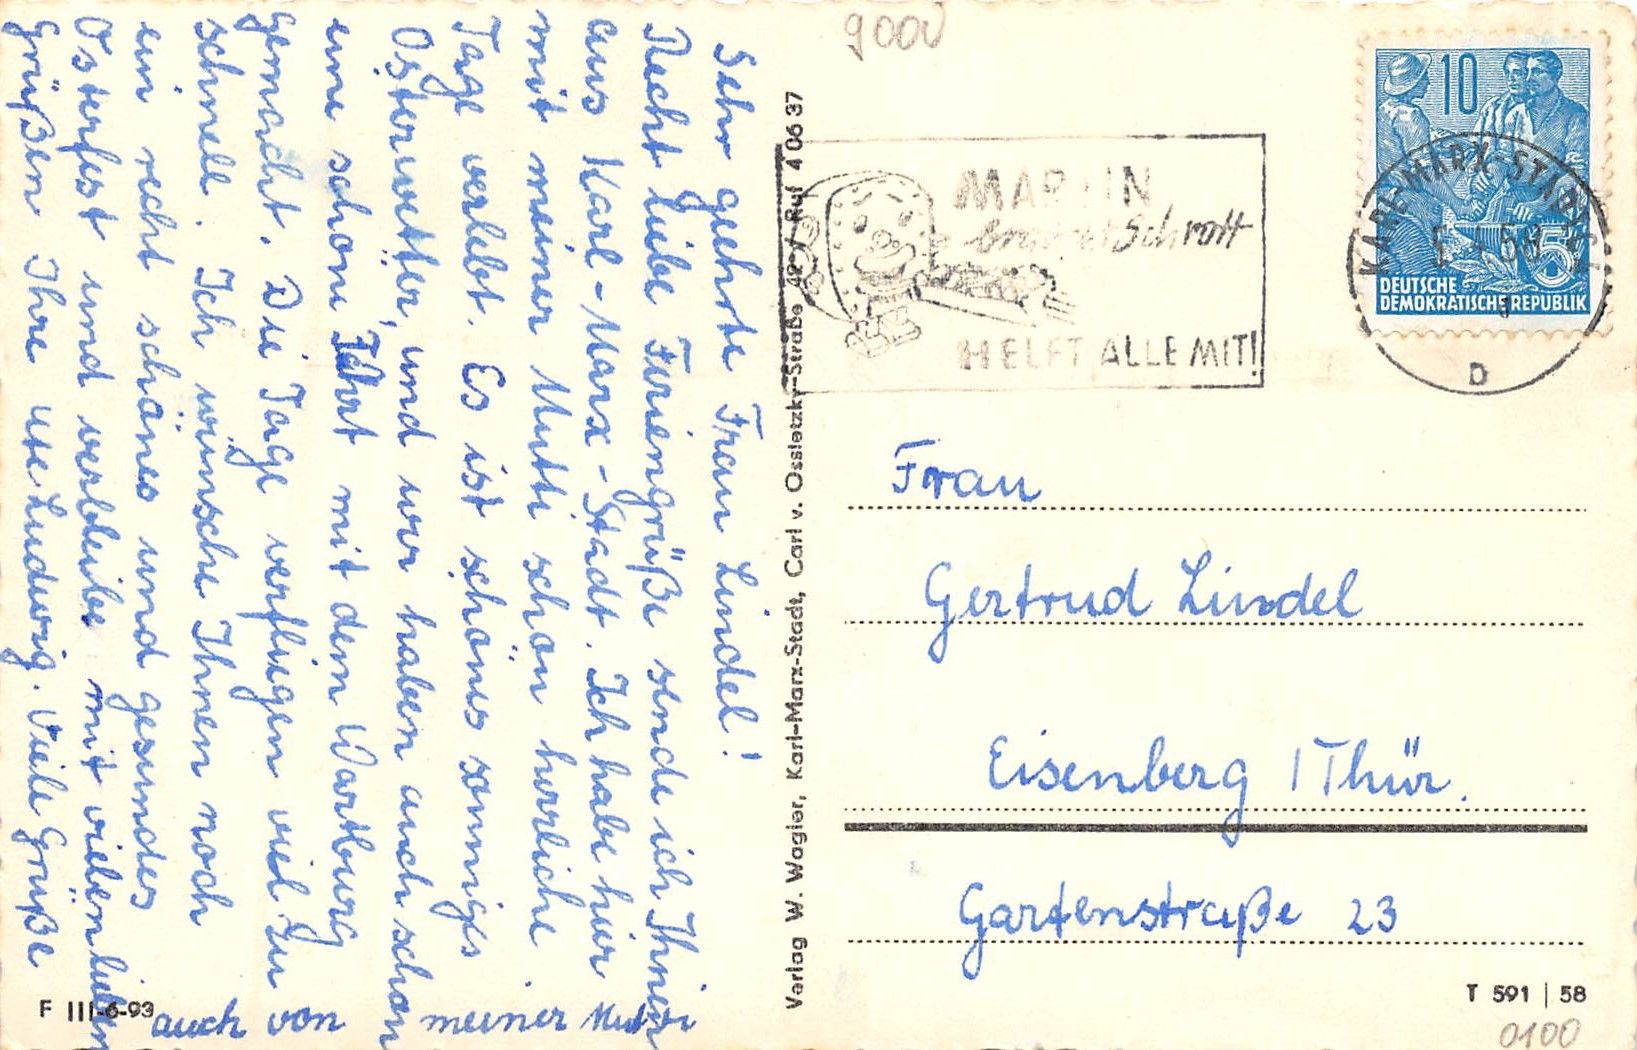 Sehr geehrte Frau Lindel!
Recht liebe Feriengrüße sende ich Ihnen
aus Karl-Marx-Stadt. Ich habe hier
mit meiner Mutti schon herrliche
Tage verlebt. Es ist schönes sonniges
Osterwetter, und wir haben auch schon
eine schöne Fahrt mit dem Wartburg
gemacht. Die Tage verfliegen viel zu
schnell. Ich wünsche Ihnen noch
ein recht schönes und gesundes
Osterfest und verbleibe mit vielen lieben
Grüßen Ihre Ute Ludwig. Viele Grüße
auch von meiner Mutti
F III-6-93
Verlag W. Wagler, Karl-Marx-Stadt, Carl v. Ossietzky-Straße / Ruf 4 06 37
9000
MARTIN
braucht Schrott
HELFT ALLE MIT!
10
DEUTSCHE
DEMOKRATISCHE REPUBLIK
5
KARL-MARX-STADT
58
D
Frau
Gertrud Lindel
Eisenberg / Thür.
Gartenstraße 23
T 591 | 58
0100